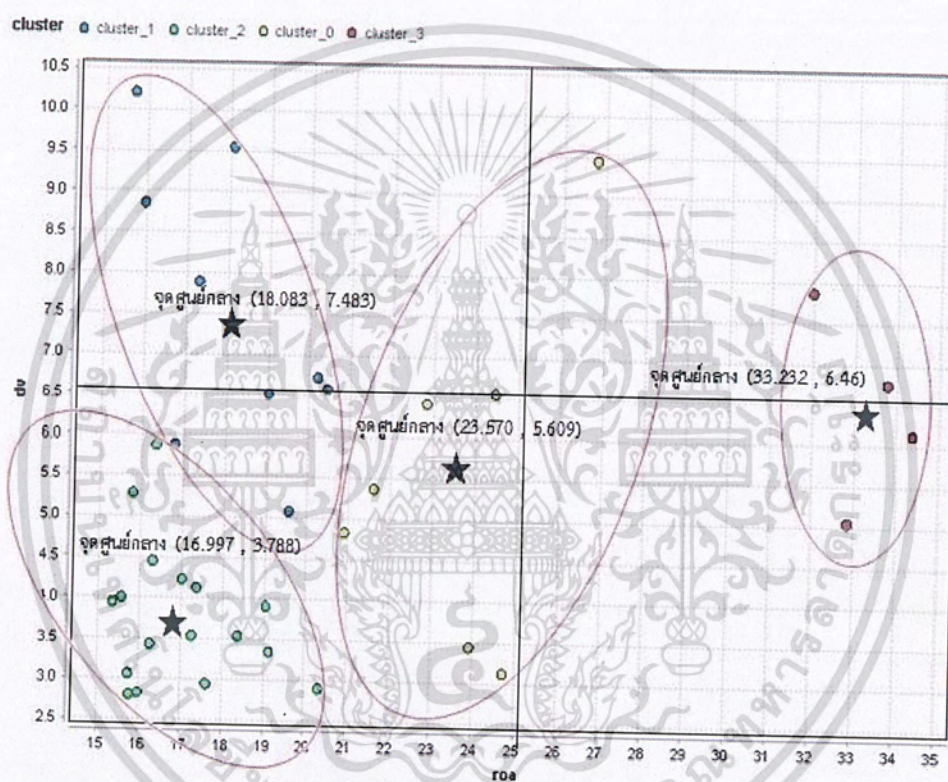 cluster cluster_1 cluster_2 cluster_0 cluster_3
10.5
10.0
9.5
9.0
8.5
8.0
7.5
7.0
6.5
6.0
5.5
5.0
4.5
4.0
3.5
3.0
2.5
dy
จุดศูนย์กลาง (18.083 , 7.483)
จุดศูนย์กลาง (33.232 , 6.46)
จุดศูนย์กลาง (23.570 , 5.609)
จุดศูนย์กลาง (16.997 , 3.788)
15 16 17 18 19 20 21 22 23 24 25 26 27 28 29 30 31 32 33 34 35
roa